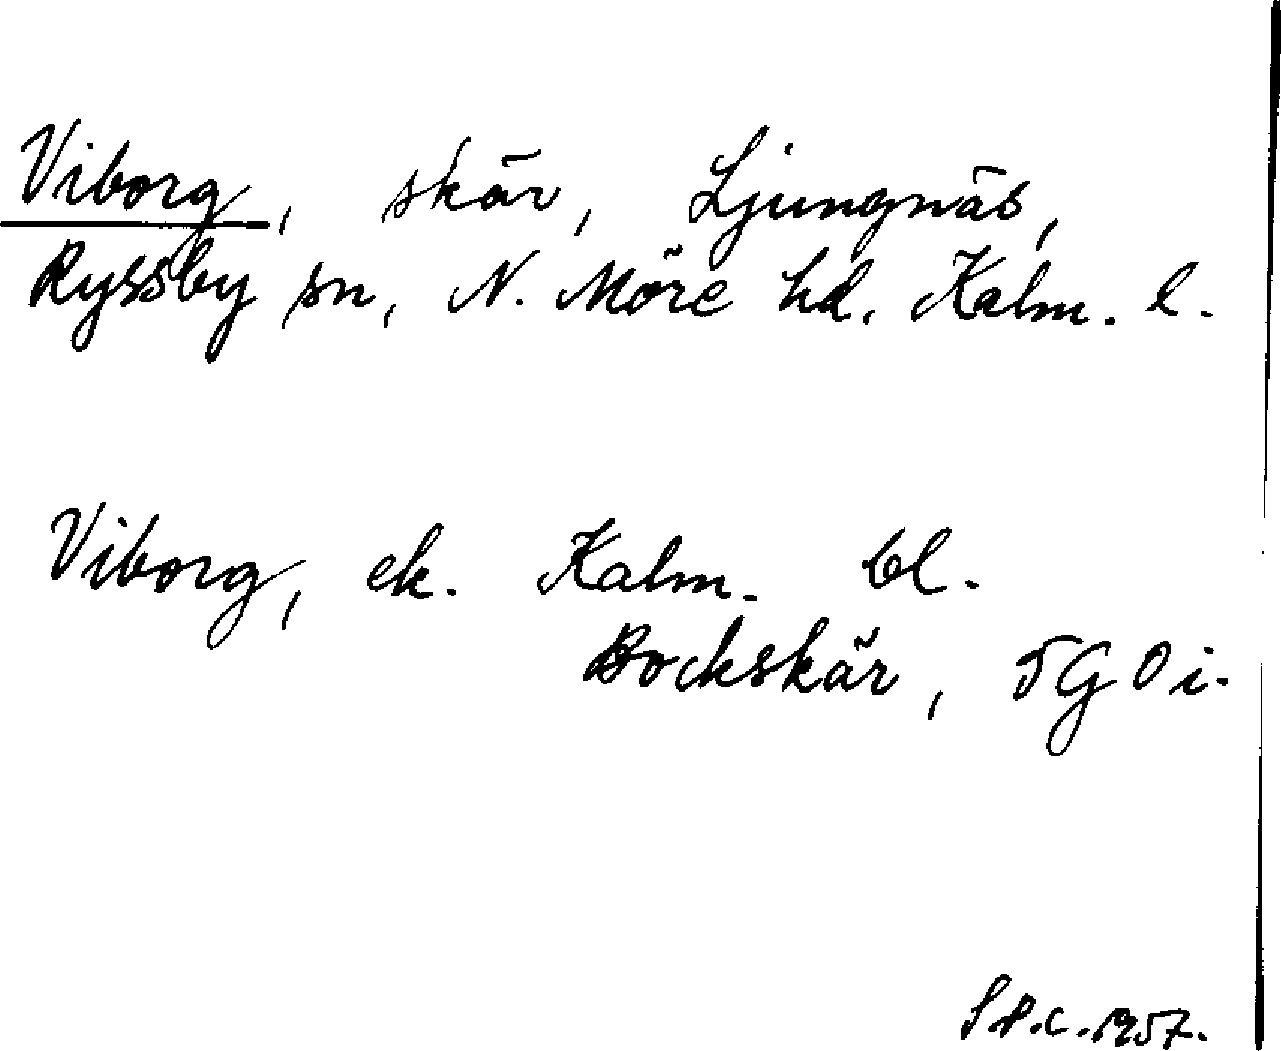 Viborg, skär, Ljungnäs,
Ryssby sn, N. Möre hd, Kalm. l.
Viborg, ek. Kalm. bl.
Bockskär, TGOi.
S.P.C. 1957.